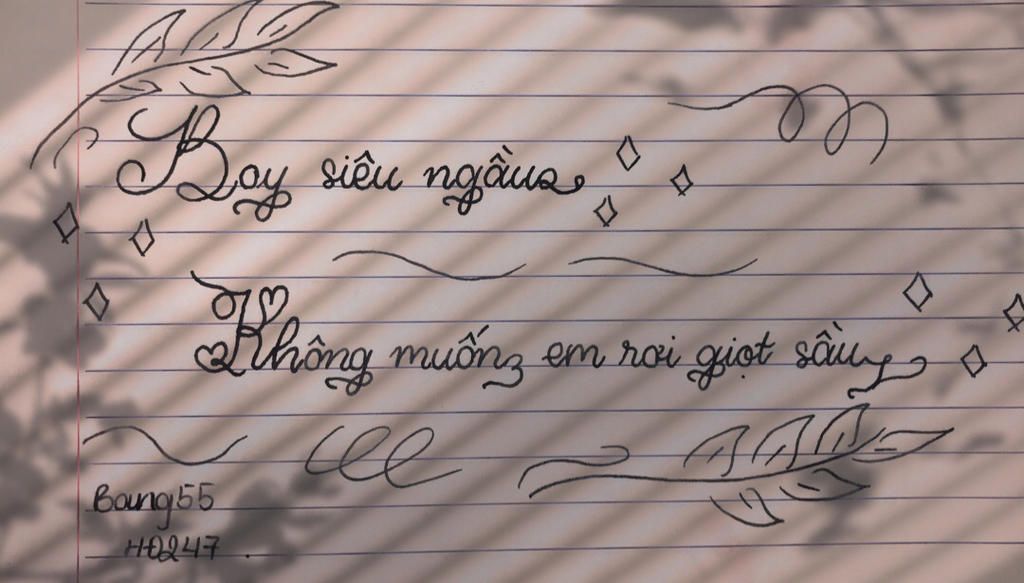 Boy siêu ngầu
Không muốn em rơi giọt sầu
Bang55
HD247